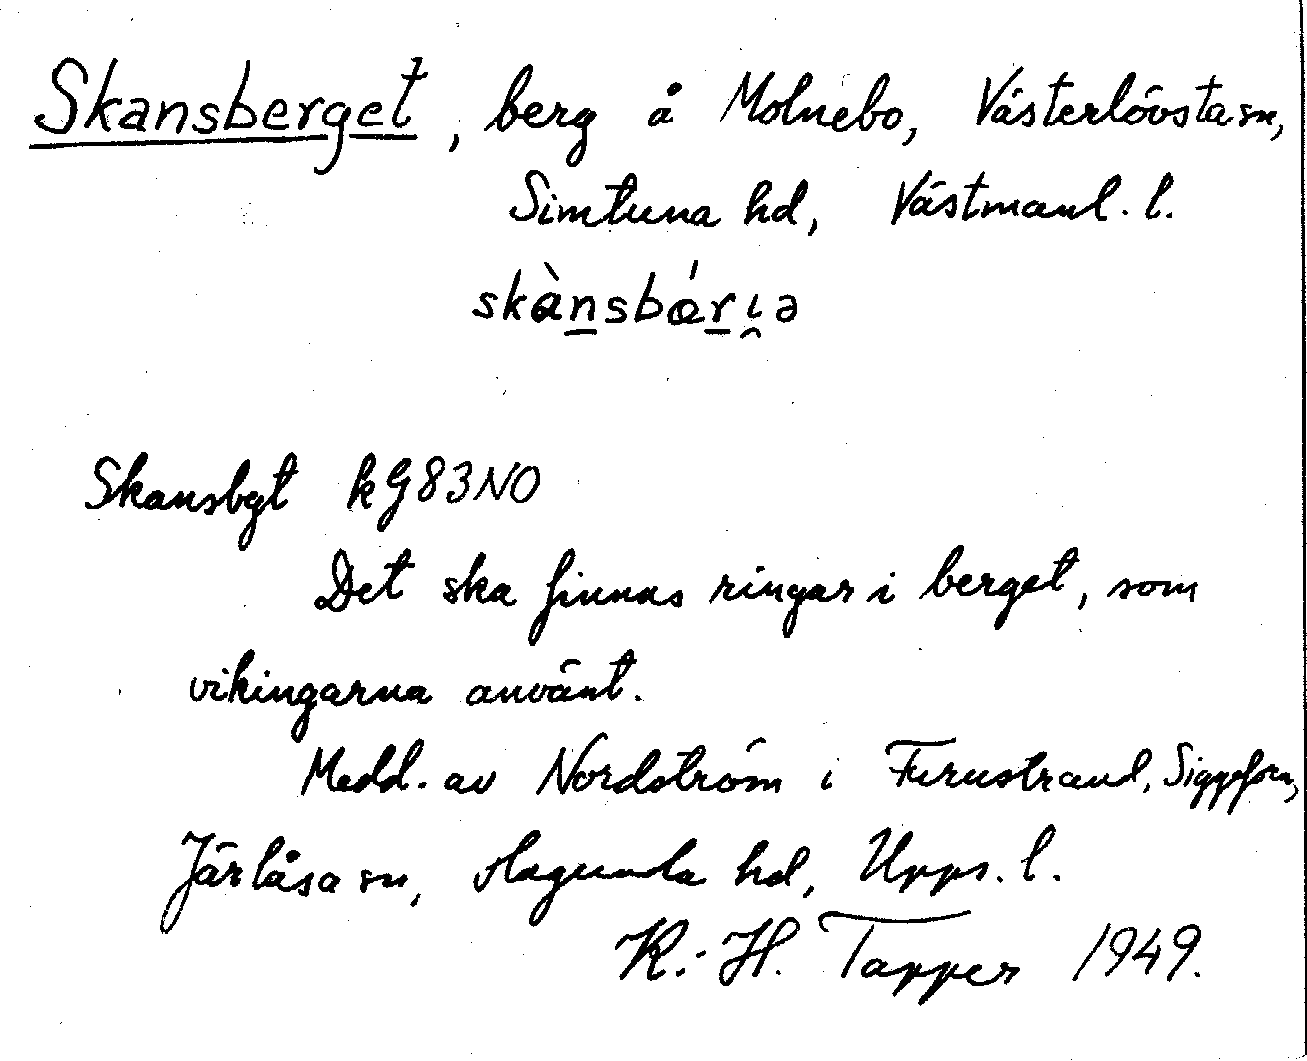 Skansberget, berg å Molnebo, Västerlövsta sn,
Simtuna hd, Västmanl. l.
skànsbárɩ̯ə
Skansbgt kG83NO
Det ska finnas ringar i berget, som
vikingarna använt.
Medd. av Nordström i Furustrand, Siggefora,
Järlåsa sn, Hagunda hd, Upps. l.
K.-H. Tapper 1949.